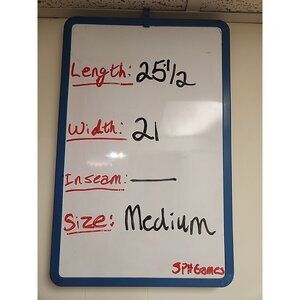 Length: 25 1/2
Width: 21
Inseam: —
Size: Medium
SPH Games